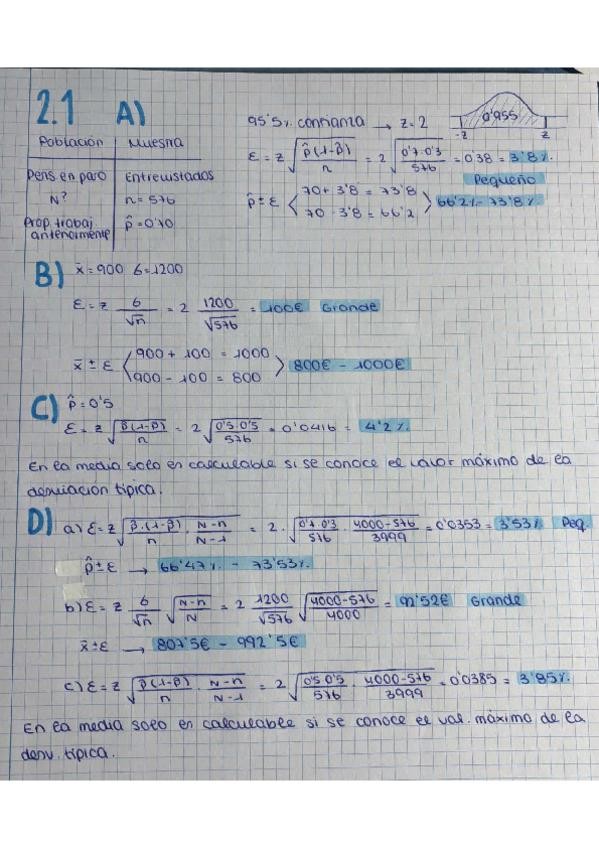 2.1 A)
95'5%. confianza → z=2
0'955
-z z
Población Muestra
Pers. en paro Entrevistados
N? n=576
Prop. trabaj. anteriormente p̂=0'70
ε = z √(p̂(1-p̂)/n) = 2 √(0'7·0'3/576) = 0'38 = 3'8%.
Pequeño
p̂ ± ε < 70+3'8 = 73'8
70-3'8 = 66'2 > 66'2%-73'8%
B) x̄=900 б=1200
ε = z б/√n = 2 1200/√576 = 100€ Grande
x̄ ± ε < 900+100 = 1000
900-100 = 800 > 800€ - 1000€
C) p̂=0'5
ε = z √(p̂(1-p̂)/n) = 2 √(0'5·0'5/576) = 0'0416 = 4'2%.
En la media solo es calculable si se conoce el valor máximo de la
desviación típica.
D) a) ε = z √(p̂·(1-p̂)/n · N-n/N-1) = 2·√(0'7·0'3/576 · 4000-576/3999) = 0'0353 = 3'53% Peq.
p̂ ± ε → 66'47%. - 73'53%.
b) ε = z б/√n √(N-n/N) = 2 1200/√576 √(4000-576/4000) = 92'52€ Grande
x̄ ± ε → 807'5€ - 992'5€
c) ε = z √(p̂(1-p̂)/n · N-n/N-1) = 2 √(0'5·0'5/576 · 4000-576/3999) = 0'0385 = 3'85%.
En la media solo es calculable si se conoce el val. máximo de la
desv. típica.